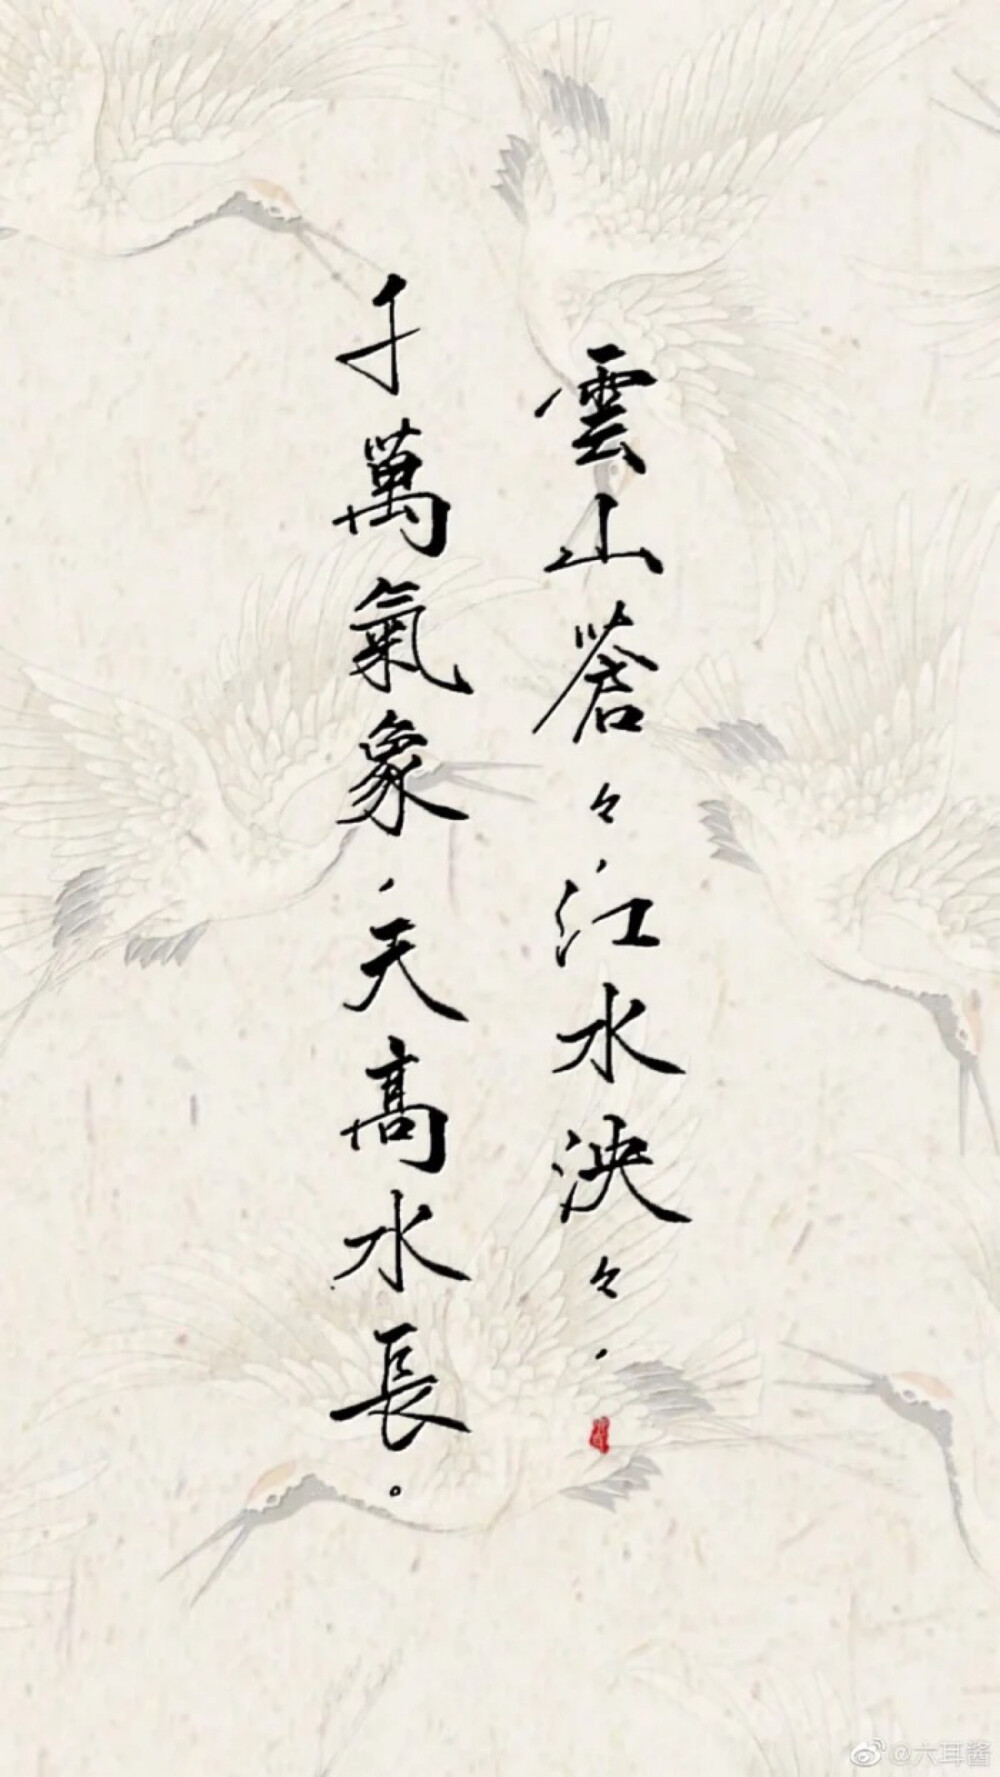 雲山蒼々，江水泱々．
千萬氣象，天高水長。
@六耳酱